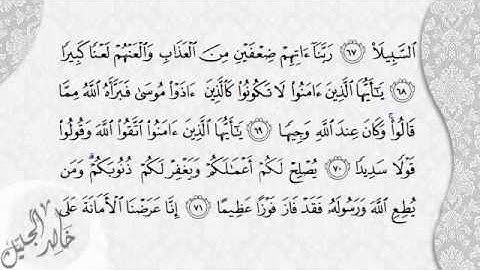 السَّبِيلَا۠ ٦٧ رَبَّنَآ ءَاتِهِمْ ضِعْفَيْنِ مِنَ الْعَذَابِ وَالْعَنْهُمْ لَعْنًا كَبِيرًا
٦٨ يَٰٓأَيُّهَا الَّذِينَ ءَامَنُوا۟ لَا تَكُونُوا۟ كَالَّذِينَ ءَاذَوْا۟ مُوسَىٰ فَبَرَّأَهُ اللَّهُ مِمَّا
قَالُوا۟ ۚ وَكَانَ عِندَ اللَّهِ وَجِيهًا ٦٩ يَٰٓأَيُّهَا الَّذِينَ ءَامَنُوا۟ اتَّقُوا۟ اللَّهَ وَقُولُوا۟
قَوْلًا سَدِيدًا ٧٠ يُصْلِحْ لَكُمْ أَعْمَٰلَكُمْ وَيَغْفِرْ لَكُمْ ذُنُوبَكُمْ ۗ وَمَن
يُطِعِ اللَّهَ وَرَسُولَهُۥ فَقَدْ فَازَ فَوْزًا عَظِيمًا ٧١ إِنَّا عَرَضْنَا الْأَمَانَةَ عَلَى
خالد الجليل